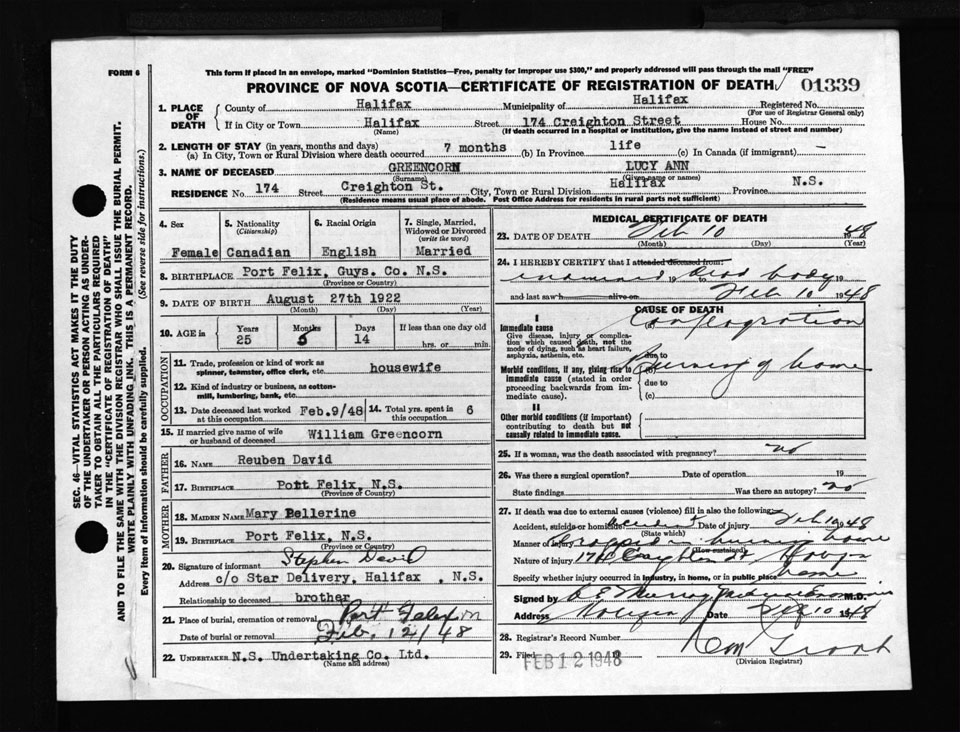 FORM 6
This form if placed in an envelope, marked "Dominion Statistics—Free, penalty for improper use $300," and properly addressed will pass through the mail "FREE"
PROVINCE OF NOVA SCOTIA—CERTIFICATE OF REGISTRATION OF DEATH 01339
1. PLACE OF DEATH
County of Halifax Municipality of Halifax Registered No.
(For use of Registrar General only)
If in City or Town Halifax Street 174 Creighton Street House No.
(Name) (If death occurred in a hospital or institution, give the name instead of street and number)
2. LENGTH OF STAY (in years, months and days)
(a) In City, Town or Rural Division where death occurred 7 months (b) In Province life (c) In Canada (if immigrant) —
3. NAME OF DECEASED GREENCORN LUCY ANN
(Surname) (Given name or names)
RESIDENCE No. 174 Street Creighton St. City, Town or Rural Division Halifax Province N.S.
(Residence means usual place of abode. Post Office Address for residents in rural parts not sufficient)
4. Sex Female
5. Nationality (Citizenship) Canadian
6. Racial Origin English
7. Single, Married, Widowed or Divorced (write the word) Married
8. BIRTHPLACE Port Felix, Guys. Co. N.S.
(Province or Country)
9. DATE OF BIRTH August 27th 1922
(Month) (Day) (Year)
10. AGE in Years 25 Months 5 Days 14 If less than one day old hrs. or min.
OCCUPATION
11. Trade, profession or kind of work as spinner, teamster, office clerk, etc. housewife
12. Kind of industry or business, as cotton-mill, lumbering, bank, etc.
13. Date deceased last worked at this occupation Feb.9/48 14. Total yrs. spent in this occupation 6
15. If married give name of wife or husband of deceased William Greencorn
FATHER
16. NAME Reuben David
17. BIRTHPLACE Port Felix, N.S.
(Province or Country)
MOTHER
18. MAIDEN NAME Mary Pellerine
19. BIRTHPLACE Port Felix, N.S.
(Province or Country)
20. Signature of informant Stephen David
Address c/o Star Delivery, Halifax, N.S.
Relationship to deceased brother
21. Place of burial, cremation or removal Port Felix
Date of burial or removal Feb, 12/48
22. UNDERTAKER N.S. Undertaking Co. Ltd.
(Name and address)
MEDICAL CERTIFICATE OF DEATH
23. DATE OF DEATH Feb 10 1948
(Month) (Day) (Year)
24. I HEREBY CERTIFY that I attended deceased from:
examined 19 dead body 19
and last saw h alive on Feb 10 1948
CAUSE OF DEATH
I
Immediate cause Conflagration
Give disease, injury or complication which caused death, not the mode of dying, such as heart failure, asphyxia, asthenia, etc.
due to Burning of home
Morbid conditions, if any, giving rise to immediate cause (stated in order proceeding backwards from immediate cause).
due to
(c)
II
Other morbid conditions (if important) contributing to death but not causally related to immediate cause.
25. If a woman, was the death associated with pregnancy? no
26. Was there a surgical operation? Date of operation 19
State findings Was there an autopsy? no
27. If death was due to external causes (violence) fill in also the following:
Accident, suicide or homicide Accident Date of injury Feb 10 1948
(State which)
Manner of injury Trapped in burning home
(How sustained)
Nature of injury 174 Creighton St Halifax
Specify whether injury occurred in industry, in home, or in public place home
Signed by Murray Medical Examiner M.D.
Address Halifax Date Feb 10 1948
28. Registrar's Record Number
29. Filed FEB 12 1948 Grant
(Division Registrar)
SEC. 46—VITAL STATISTICS ACT MAKES IT THE DUTY
OF THE UNDERTAKER OR PERSON ACTING AS UNDER-
TAKER TO OBTAIN ALL THE PARTICULARS REQUIRED
IN THE "CERTIFICATE OF REGISTRATION OF DEATH"
AND TO FILE THE SAME WITH THE DIVISION REGISTRAR WHO SHALL ISSUE THE BURIAL PERMIT.
WRITE PLAINLY WITH UNFADING INK. THIS IS A PERMANENT RECORD.
Every item of information should be carefully supplied. (See reverse side for instructions.)